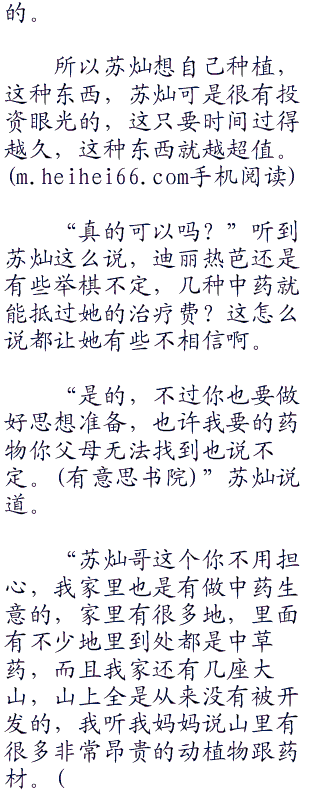 的。
所以苏灿想自己种植，
这种东西，苏灿可是很有投
资眼光的，这只要时间过得
越久，这种东西就越超值。
(m.heihei66.com手机阅读)
“真的可以吗？”听到
苏灿这么说，迪丽热芭还是
有些举棋不定，几种中药就
能抵过她的治疗费？这怎么
说都让她有些不相信啊。
“是的，不过你也要做
好思想准备，也许我要的药
物你父母无法找到也说不
定。(有意思书院)”苏灿说
道。
“苏灿哥这个你不用担
心，我家里也是有做中药生
意的，家里有很多地，里面
有不少地里到处都是中草
药，而且我家还有几座大
山，山上全是从来没有被开
发的，我听我妈妈说山里有
很多非常昂贵的动植物跟药
材。(